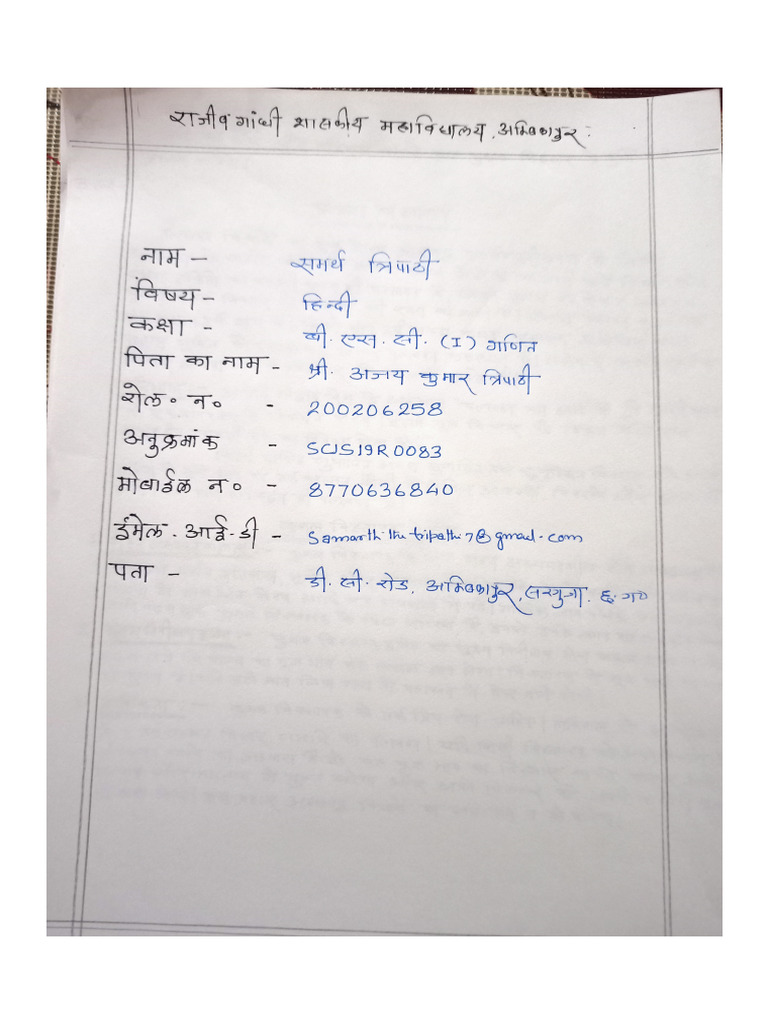 राजीव गांधी शासकीय महाविद्यालय, अम्बिकापुर
नाम - समर्थ त्रिपाठी
विषय - हिन्दी
कक्षा - बी. एस. सी. (I) गणित
पिता का नाम - श्री. अजय कुमार त्रिपाठी
रोल॰ न॰ - 200206258
अनुक्रमांक - SCJS19R0083
मोबाईल न॰ - 8770636840
ईमेल. आई.डी - Samarth the tripathi7@gmail.com
पता - डी. सी. रोड, अम्बिकापुर, सरगुजा. छ. ग॰